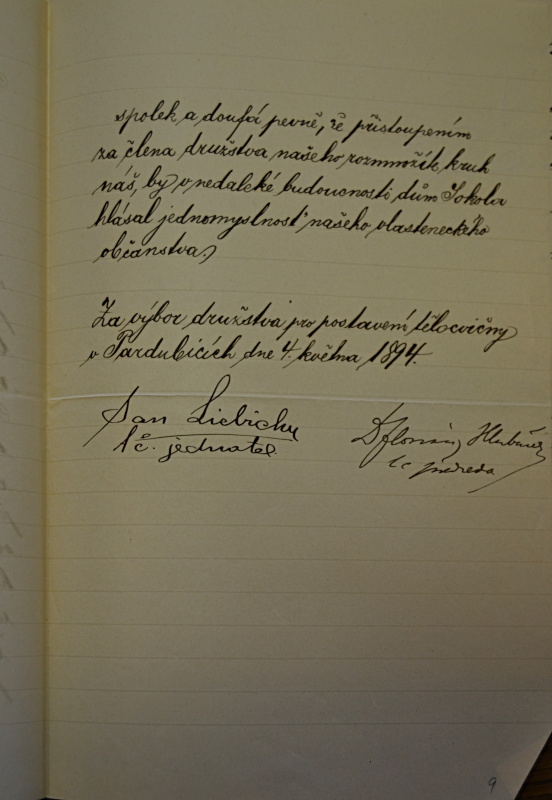 spolek a doufá pevně, že přistoupením
za člena družstva našeho rozmnožíte kruh
náš, by v nedaleké budoucnosti dům Sokola
hlásal jednomyslnost našeho vlasteneckého
občanstva.)
Za výbor družstva pro postavení tělocvičny
v Pardubicích dne 4. května 1894.
Jan Liebichy
t.č. jednatel
Dr Florián
t.č. předseda
9